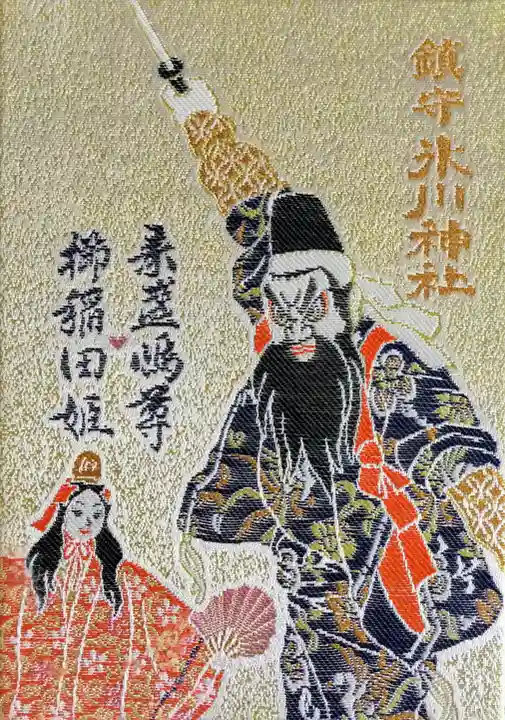 鎮守氷川神社
素盞嗚尊
櫛稲田姫